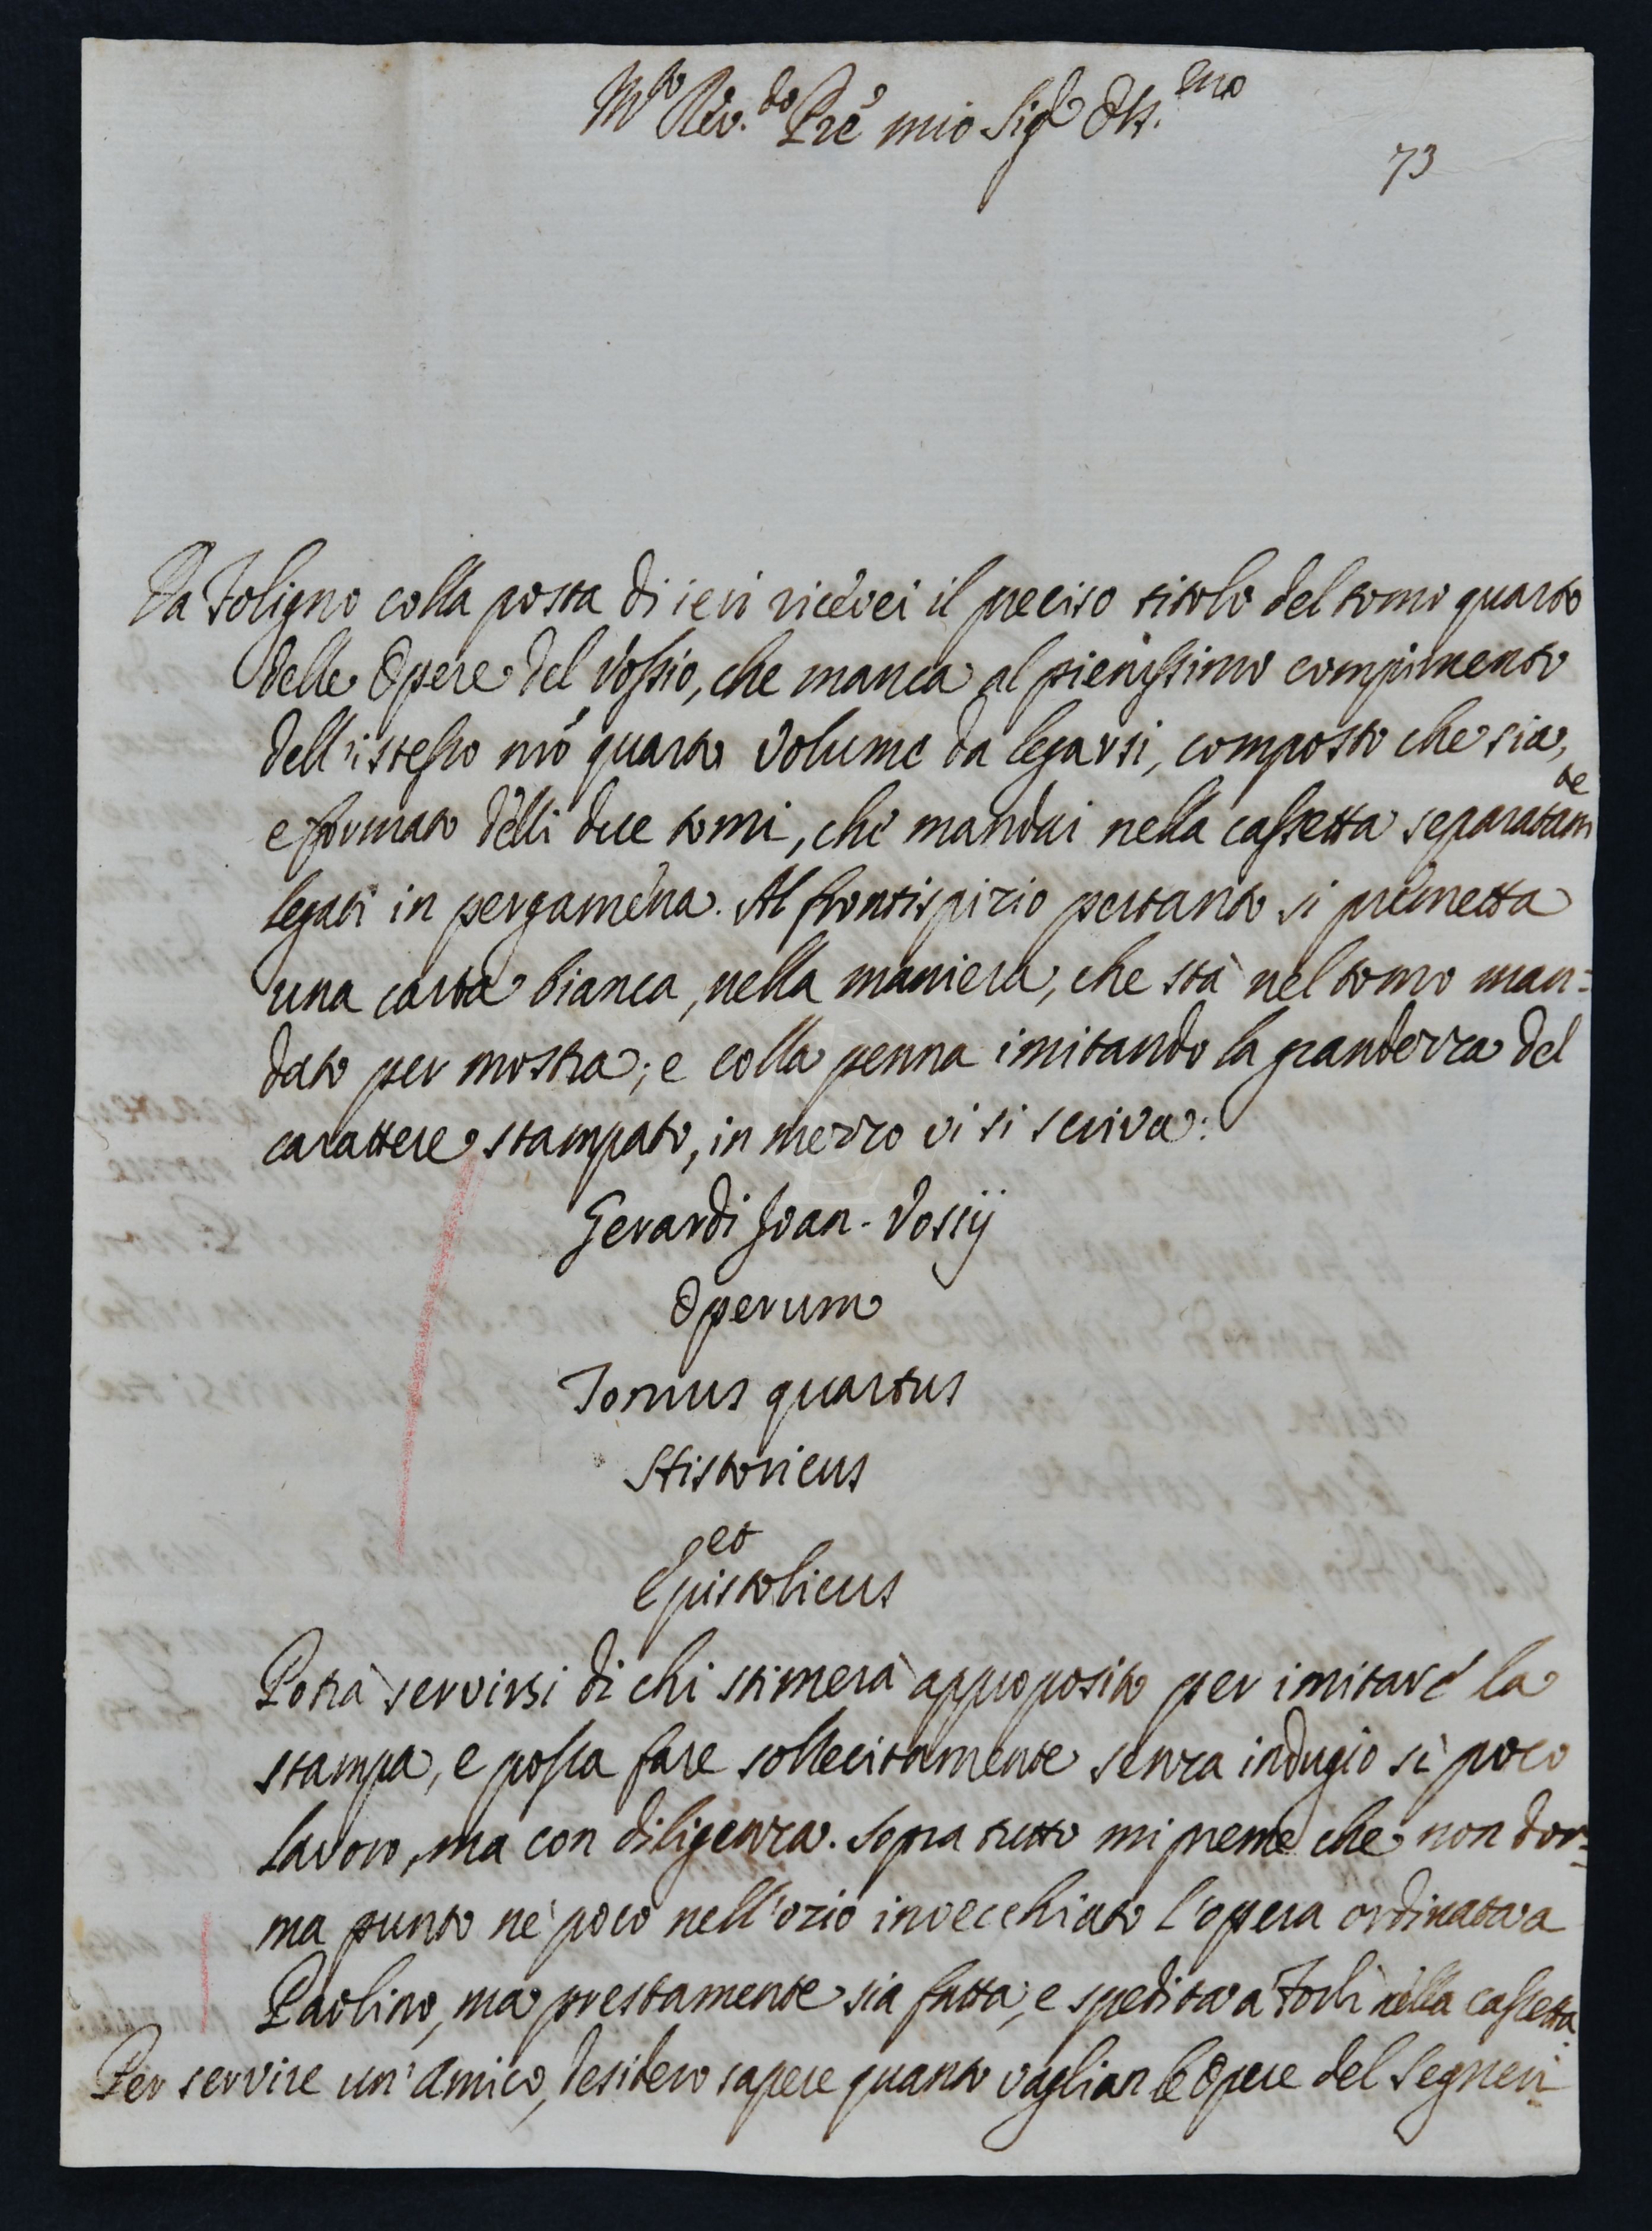 M.to Rev.do Pre mio Sig.r Oss.mo
73
Da Foligno colla posta di ieri ricevei il preciso titolo del tomo quarto
delle Opere del Vossio, che manca al pienissimo compimento
dell'istesso mio quarto volume da legarsi, composto che sia,
e formato delli due tomi, che mandai nella cassetta separatam.te
legati in pergamena. Al frontispizio pertanto si premetta
una carta bianca, nella maniera, che stà nel tomo man=
dato per mostra; e colla penna imitando la grandezza del
carattere stampato, in mezzo vi si scriva:
Gerardi Joan. Vossij
Operum
Tomus quartus
Historicus
et
Epistolicus
Potrà servirsi di chi stimeràapproposito per imitare la
stampa, e possa fare sollecitamente senza indugio sì poco
lavoro, ma con diligenza. Sopra tutto mi preme che non dor=
ma punto nè poco nell'ozio invecchiato l'opera ordinata a
Paolino, ma prestamente sia fatta, e spedita a Forlì nella cassetta.
Per servire un'amico, desidero sapere quanto vaglian le Opere del Segneri